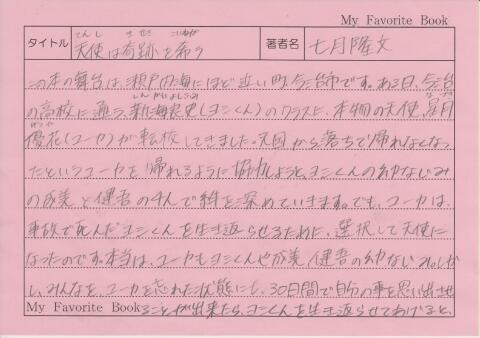 My Favorite Book
タイトル 天使は奇跡を希う 著者名 七月隆文
てんし きせき こいねが
この本の舞台は、瀬戸内海にほど近い町、今治市です。ある日、今治
の高校に通う、新海良史(ヨシくん)のクラスに、本物の天使、星月
しんかいよしふみ
優花(ユーカ)が転校してきました。天国から落ちて帰れなくなっ
たというユーカを帰れるように協力しようと、ヨシくんの幼なじみ
の成美と健吾の4人で絆を深めていきます。でも、ユーカは、
事故で死んだヨシくんを生き返らせるために、選択して天使に
なったのです。本当は、ユーカもヨシくんや成美、健吾の幼なじみ。しか
し、みんなを、ユーカを忘れた状態にし、30日間で自分の事を思い出させ
My Favorite Book ることが出来たら、ヨシくんを生き返らせてあげると、